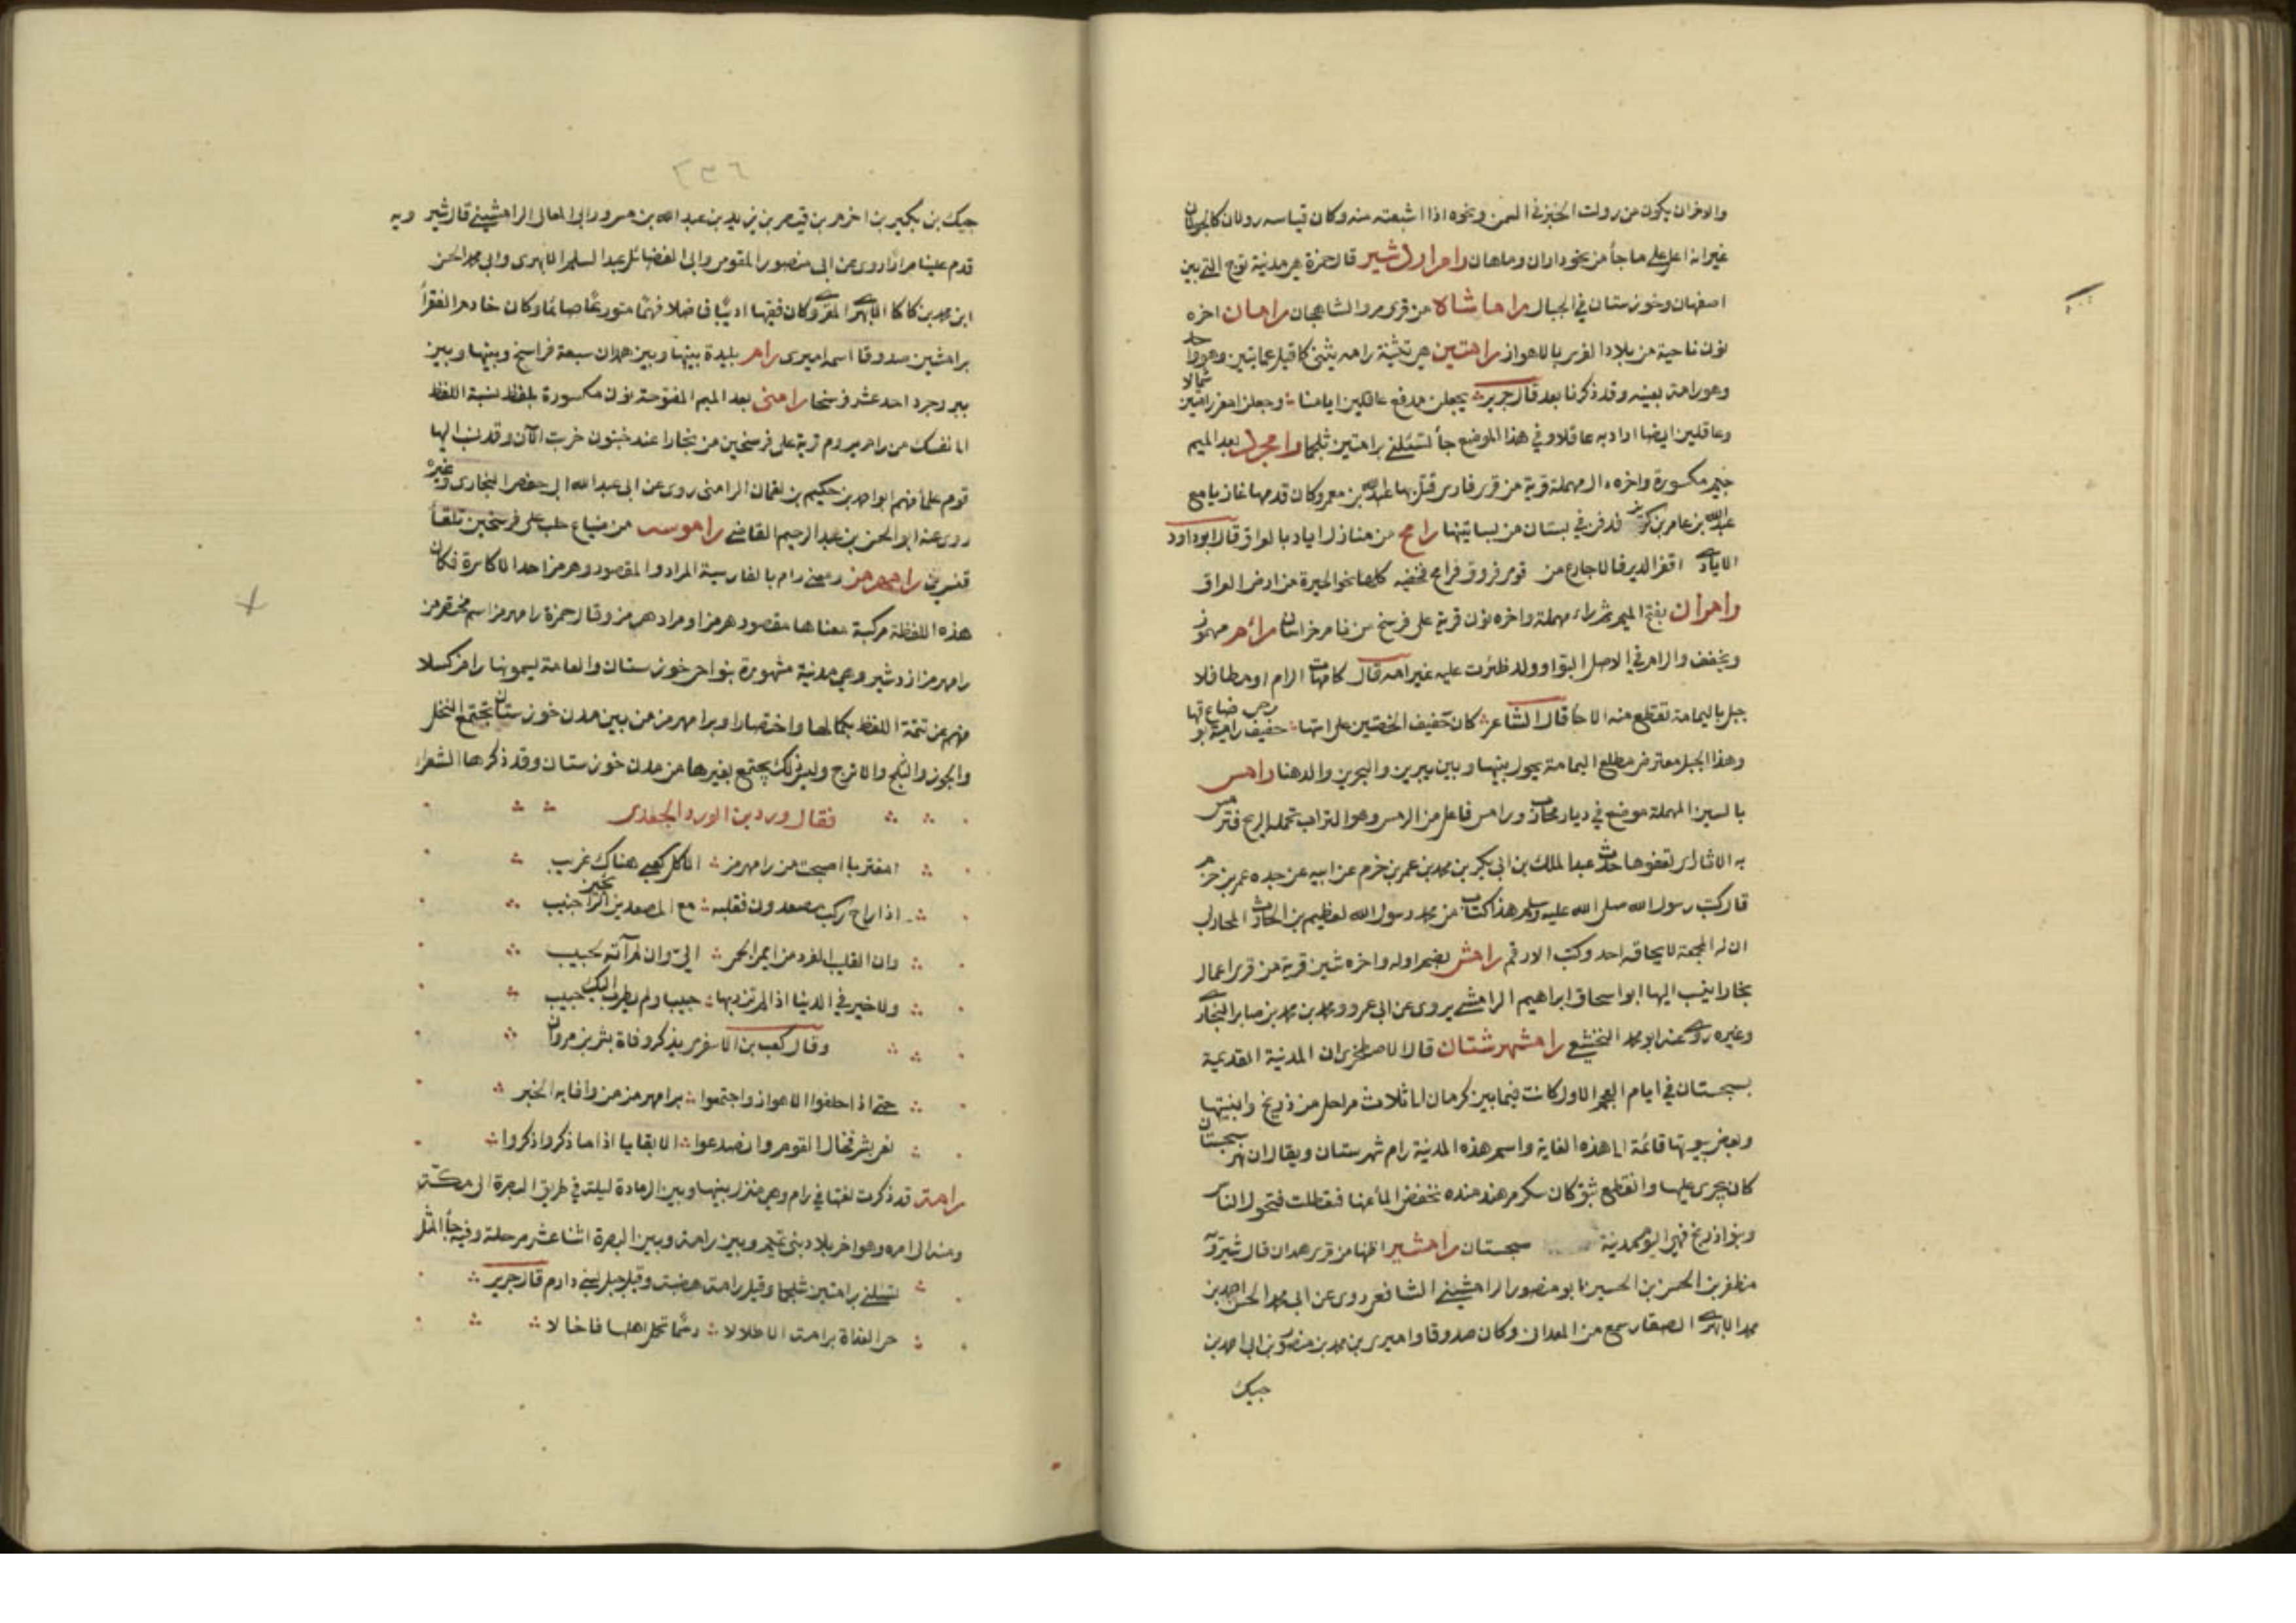 والاخران يكون من رولت الخبز في السمن ونحوه اذا اشبعته منه وكان قياسه رولان كالجولان
غير انه اعل على ما جأ من نحو داران وماهان رام اردشير قال حمزة هي مدينة توج التي بين
اصفهان وخوزستان في الجبال راماشاه من قرى مرو الشاهجان رامان اخره
نون ناحية من بلاد الفرس بالاهواز رامتين هي تثنية رامه يثنى كما قيل عمايتين وهو واحد
وهو رامة بعينه وقد ذكرنا بعد قال جرير يجعلن مدفع عاقلين ايامنا وجعلن امعز رامتين شمالا
وعاقلين ايضا اراد به عاقلا وفي هذا الموضع جأ تسئلني برامتين ثلجما رامجرد بعد الميم
جيم مكسورة واخره دال مهملة قرية من قرى فارس قتل بها عبيد الله بن معمر وكان قدمها غازيا مع
عبد الله بن عامر بن كريز فدفن في بستان من بساتينها رامح من منازل اياد بالعراق قال ابو داود
الايادي اقفر الدير فالاجارع من قومى فروق فرامح فخفيه كلها نحو الحيرة من ارض العراق
رامران بفتح الميم ثم راء مهملة واخره نون قرية على فرسخ من نسا من خراسان رائم مهموز
ويخفف والرام في الاصل البو او ولد ظئرت عليه غير امه قال كامهات الرام او مطافلا
جبل باليمامة تقطع منه الارحأ قال الشاعر كان حفيف الخصيتين على استها حفيف رحى رامية ضاع بوقها
وهذا الجبل معترض مطلع اليمامة يحول بينها وبين يبرين والبحرين والدهنا رامس
بالسين المهملة موضع في ديار محارب ورامس فاعل من الرمس وهو التراب تحمله الريح فترمس
به الاثار اى تعفوها حدث عبد الملك بن ابي بكر بن محمد بن عمر بن حزم عن ابيه عن جده عمر بن حزم
قال كتب رسول الله صلى الله عليه وسلم هذا كتاب من محمد رسول الله لعظيم بن الحارث المحاربى
ان له المجمعة لا يحاقه احد وكتب الارقم رامش بضم اوله واخره شين قرية من قرى اعمال
بخارا ينسب اليها ابو اسحاق ابراهيم الرامشي يروى عن ابى عمرو ومحمد بن محمد بن صابر البخارى
وغيره روى عنه ابو محمد النخشبي رامشهرستان قال الاصطخرى ان المدينة القديمة
بسجستان في ايام العجم الاول كانت فيما بين كرمان الى ثلاث مراحل من زرنج وابنيتها
وبعض بيوتها قائمة الى هذه الغاية واسم هذه المدينة رام شهرستان ويقال ان نهر سجستان
كان يجرى عليها وانقطع بثق كان سكر من هندمنده تخفض المأ عنها فتعطلت فتحول الناس
وبنوا زرنج فهى اليوم مدينة سجستان رامشير اظنها من قرى همدان قال شيرويه
مظفر بن الحسن بن الحسين ابو منصور الرامشيني الشافعي روى عن ابى محمد الحسن بن احمد بن
محمد الابهرى الصفار سمع من المعدانى وكان صدوقا واميرى بن محمد بن منصور بن ابى احمد بن
جيك
٢٣٦
جيك بن بكير بن اخرم بن قيصر بن يزيد بن عبد الله بن مسرور ابى المعالى الرامشيني قال شيرويه
قدم علينا مرارا روى عن ابى منصور المقومى وابى الفضائل عبد السلم الابهرى وابى محمد الحسن
ابن محمد بن كاكا الابهرى المقرى وكان فقيها اديبا فاضلا فهما متورعا صائما وكان خادم الفقرأ
برامشين صدوقا اسمه اميرى رامر بليدة بينها وبين همدان سبعة فراسخ وبينها وبين
بروجرد احد عشر فرسخا رامنى بعد الميم المفتوحة نون مكسورة بلفظ نسبة اللفظ
الى نفسك من رام يروم قرية على فرسخين من بخارا عند خنبون خربت الآن وقد نسب اليها
قوم علمأ منهم ابو احمد بن حكيم بن لقمان الرامنى روى عن ابى عبد الله ابى حفص البخارى وغيره
روى عنه ابو الحسن بن عبد الرحيم القاضي راموسه من ضياع حلب على فرسخين تلقأ
قنسرين رامهرمز ومعنى رام بالفارسية المراد والمقصود وهرمز احد الاكاسرة فكان
هذه اللفظة مركبة معناها مقصود هرمز او مراد هرمز وقال حمزة رامهرمز اسم مختصر من
رامهرمز ازدشير وهي مدينة مشهورة بنواحى خوزستان والعامة يسمونها رامز كسلا
منهم عن تتمة اللفظ بكمالها واختصارا وبرامهرمز من بين مدن خوزستان تجتمع النخل
والجوز والثلج والاترج وليس ذلك يجتمع بغيرها من مدن خوزستان وقد ذكرها الشعرأ
فقال ورد بن الورد الجعدى
امغتربا اصبحت من رامهرمز الا كل كعبي هناك غريب
اذا راح ركب مصعدون فقلبه مع المصعدين الرائحين جنيب
وان القليب الفرد من ايمن الحمى الي وان لم آته لحبيب
ولا خير في الدنيا اذا لم تزر بها حبيبا ولم يطرب اليك حبيب
وقال كعب بن الاشقرى يذكر وفاة بشر بن مروان
حتى اذا خلفوا الاهواز واجتمعوا برامهرمز من وافا به الخبر
نعى بشر فجال القوم وانصدعوا الا بقايا اذا ما ذكروا ذكروا
رامة قد ذكرت لغتها في رام وهي منزل بينها وبين الرمادة ليلة في طريق البصرة الى مكة
ومنه الى امره وهو اخر بلاد بنى تميم وبين رامة وبين البصرة اثنا عشر مرحلة وفيه جأ المثل
تسئلني برامتين شلجما وقيل رامة هضبة وقيل جبل لبني دارم قال جرير
حى الغداة برامة الاطلالا رسما تحمل اهلها فاخالا